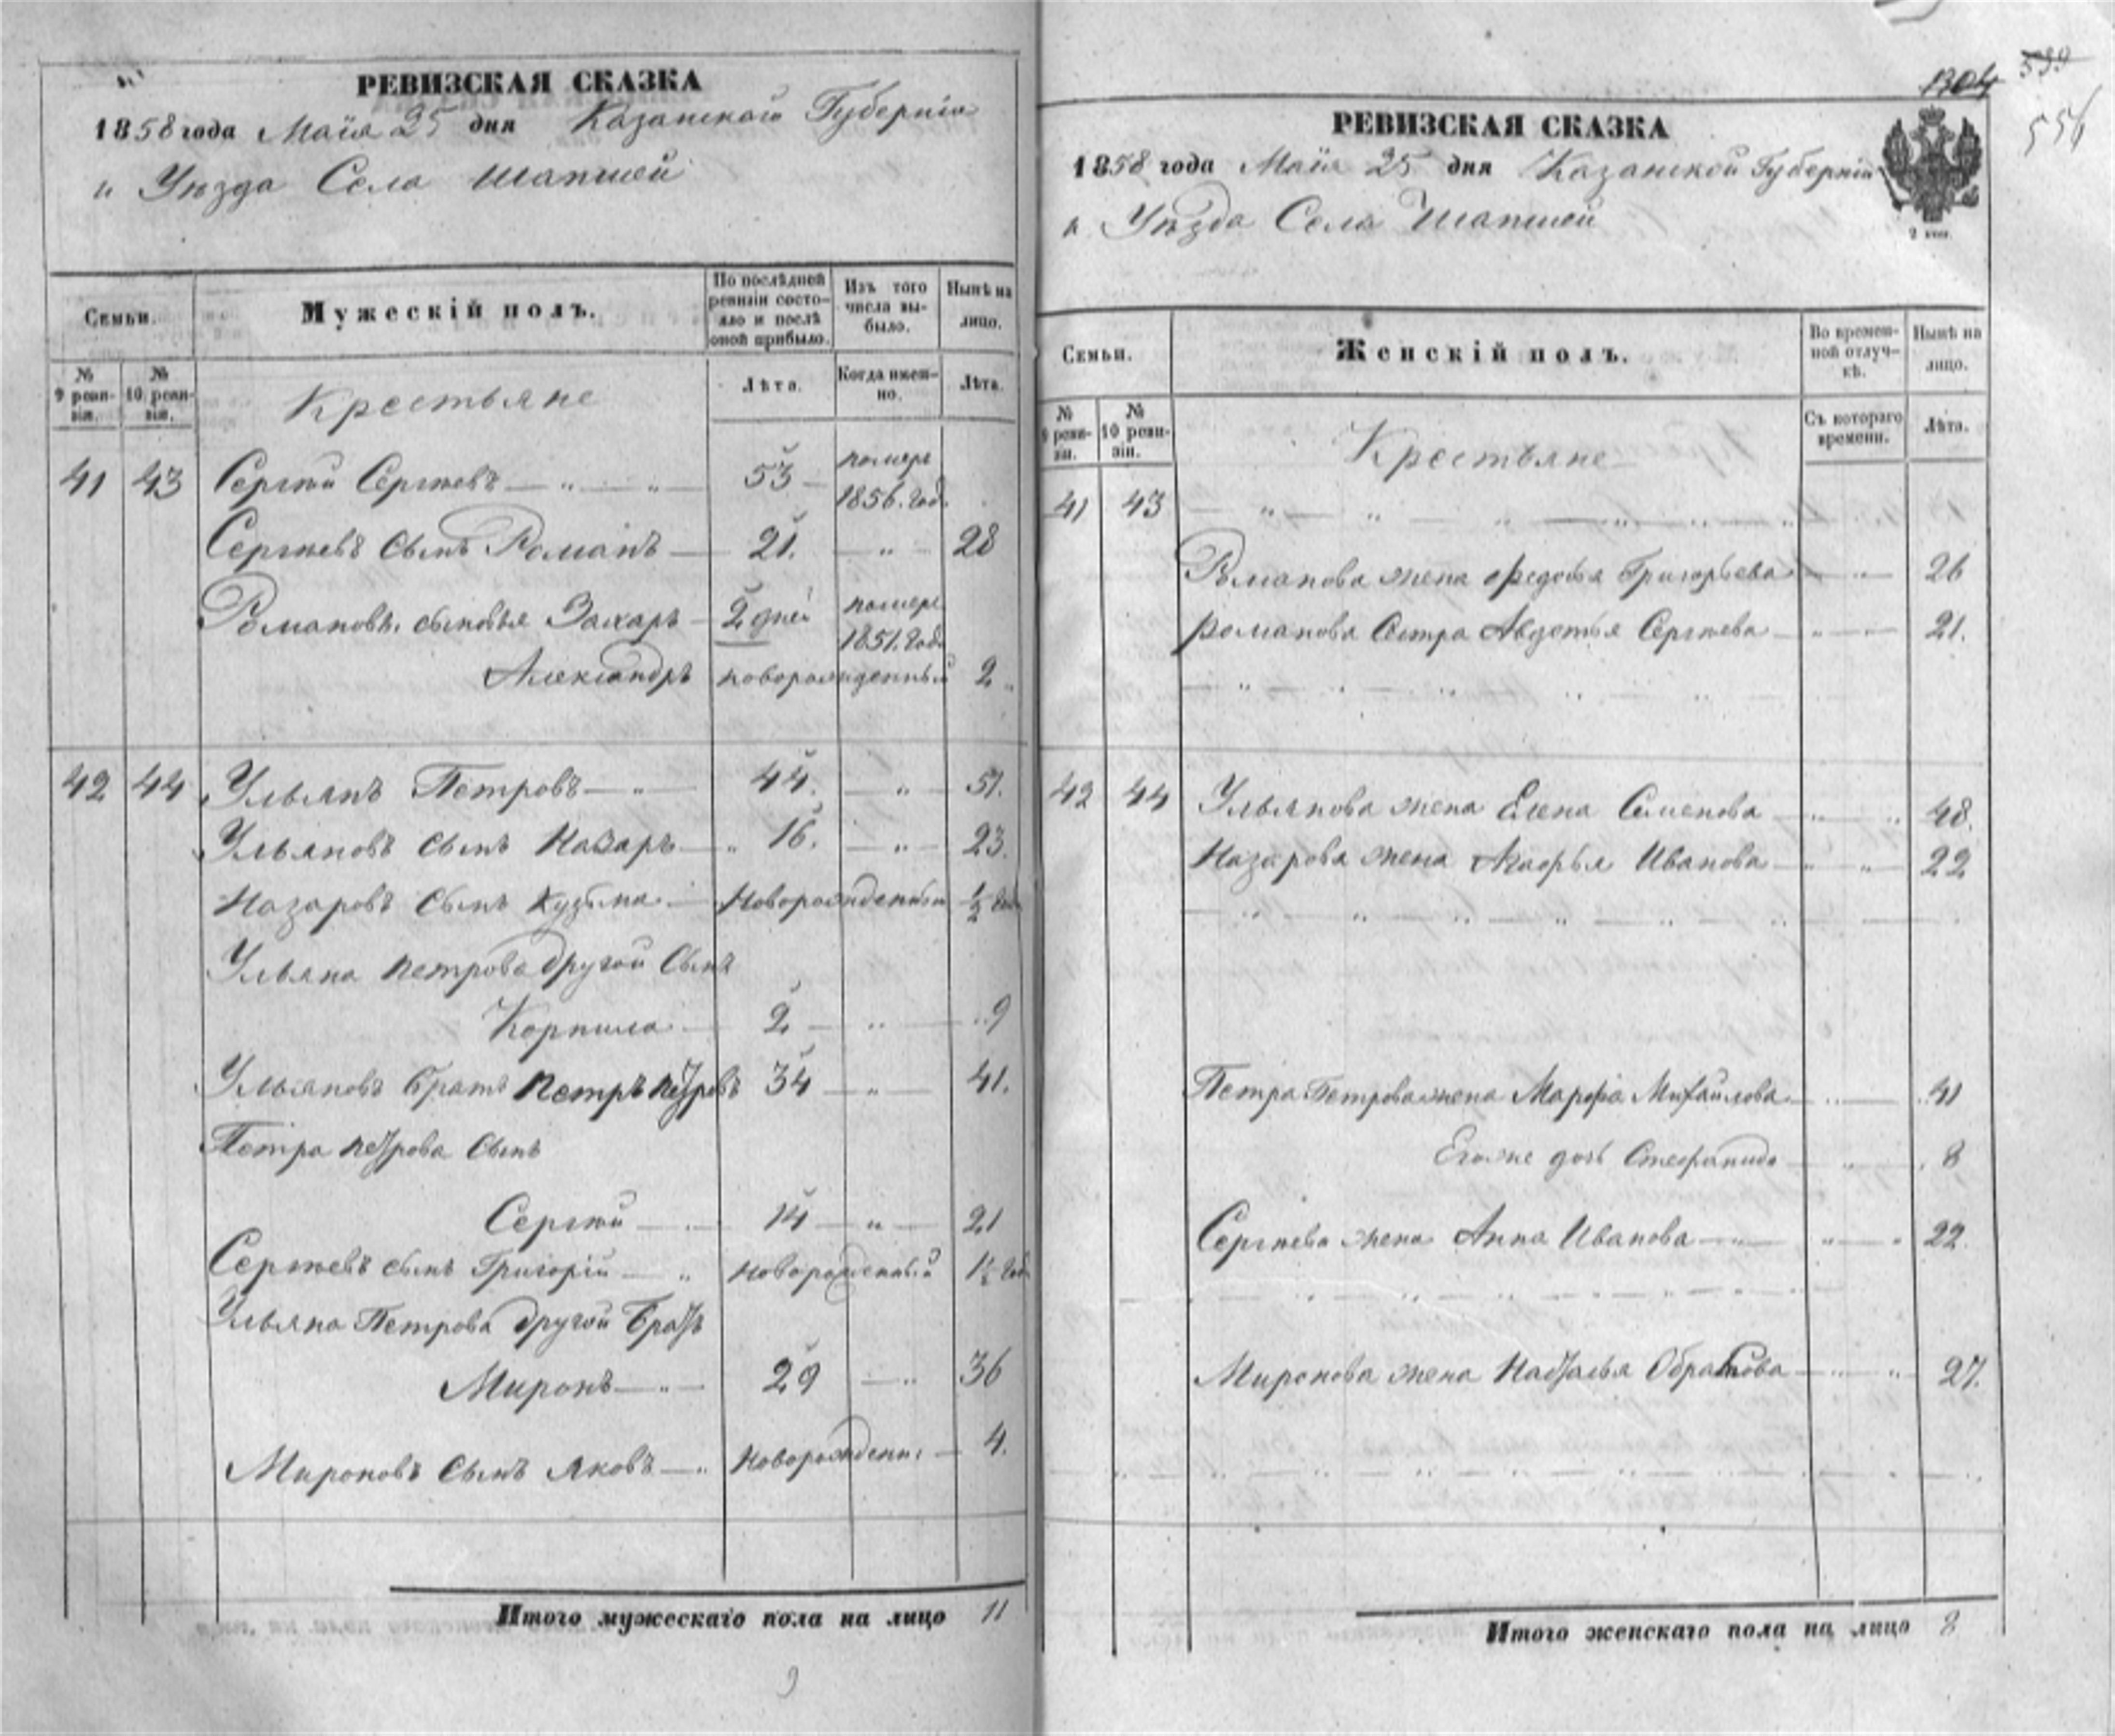 РЕВИЗСКАЯ СКАЗКА
1858 года Маія 25 дня Казанской Губерніи
и Уѣзда Села Шапшей
Семьи. Мужескій полъ. По послѣдней ревизіи состояло и послѣ оной прибыло. Изъ того числа выбыло. Нынѣ на лицо.
№ 9 ревизіи. № 10 ревизіи. Крестьяне Лѣта. Когда именно. Лѣта.
41 43 Сергѣй Сергѣевъ 53 помере 1856. год.
Сергѣевъ сынъ Романъ 21. 28
Романовы сыновья Захаръ 2 дней помере 1851. год.
Александръ новорожденный 2
42 44 Ульянъ Петровъ 44. 51.
Ульяновъ сынъ Назаръ 16. 23.
Назаровъ сынъ Кузьма Новорожденный ½ год.
Ульяна Петрова другой сынъ
Корнила 2 9
Ульяновъ братъ Петръ Петровъ 34 41.
Петра Петрова сынъ
Сергѣй 14 21
Сергѣевъ сынъ Григорій новорожденный 1½ год.
Ульяна Петрова другой братъ
Миронъ 29 36
Мироновъ сынъ Яковъ Новорожден: 4.
Итого мужескаго пола на лицо 11
1304 539
556
РЕВИЗСКАЯ СКАЗКА
1858 года Маія 25 дня Казанской Губерніи
и Уѣзда Села Шапшей
2 коп.
Семьи. Женскій полъ. Во временной отлучкѣ. Нынѣ на лицо.
№ 9 ревизіи. № 10 ревизіи. Крестьяне Съ котораго времени. Лѣта.
41 43
Романова жена Федосья Григорьева 26
Романова сестра Авдотья Сергѣева 21.
42 44 Ульянова жена Елена Семенова 48.
Назарова жена Агафья Иванова 22
Петра Петрова жена Марфа Михайлова 41
Его же дочь Стефанида 8
Сергѣева жена Анна Иванова 22.
Миронова жена Наталья 27.
Итого женскаго пола на лицо 8